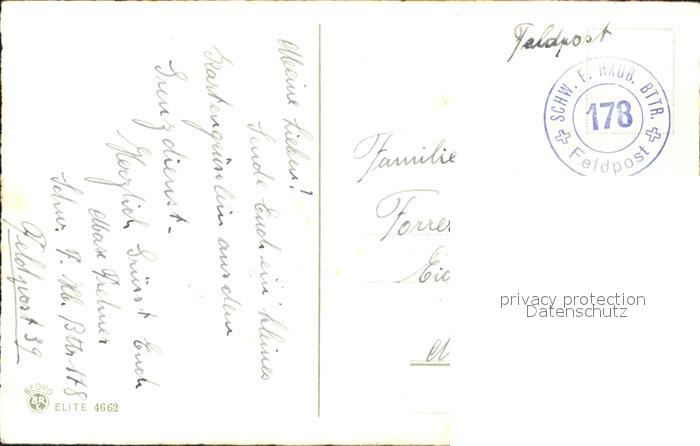 Meine Lieben!
Sende Euch ein kleines
Kartengrüsslein aus dem
Grenzdienst.
Herzlich Grüsst Euch
Max
Schw. F. Hb. Bttr 178
Feldpost 39
BEGRO
ELITE 4662
Feldpost
SCHW. F. HAUB. BTTR.
178
Feldpost
Familie
Forrer
privacy protection
Datenschutz